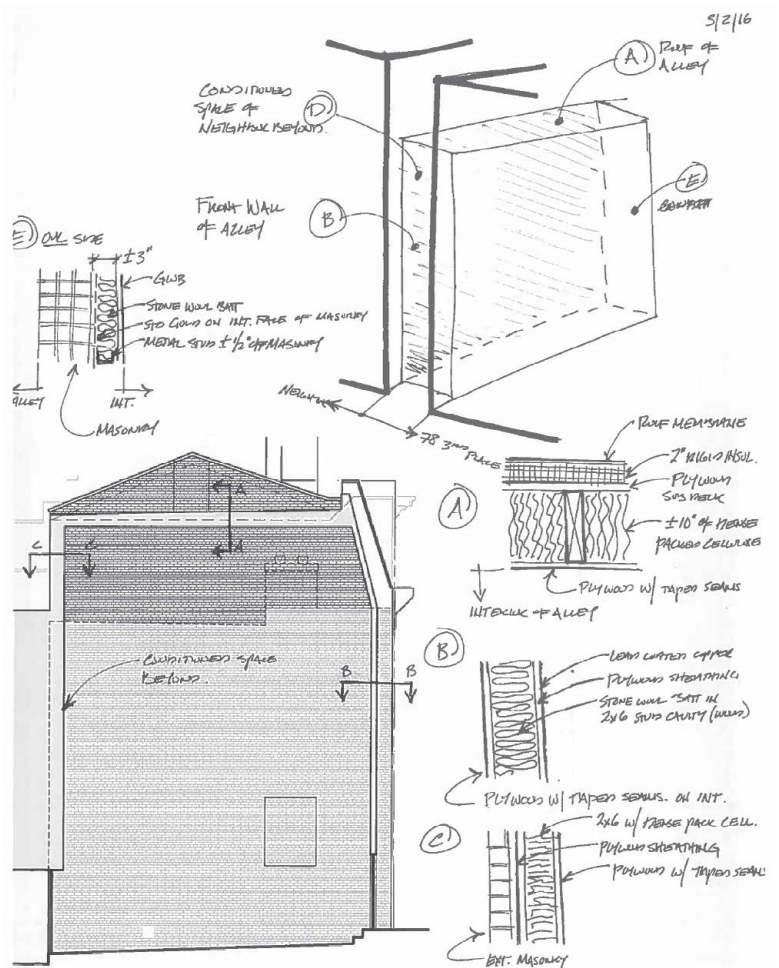 5/2/16
A ROOF OF
ALLEY
CONDITIONED
SPACE OF
NEIGHBOR BEYOND.
D
E
FRONT WALL
OF ALLEY
B
E OUR SIDE
±3"
GWB
STONE WOOL BATT
STO GOLD ON INT. FACE OF MASONRY
METAL STUD ±1/2" OFF MASONRY
ALLEY
INT.
MASONRY
NEIGHBOR
78 3RD PLACE
ROOF MEMBRANE
2" RIGID INSUL.
PLYWOOD
SUB DECK
A
±10" OF DENSE
PACKED CELLULOSE
PLYWOOD W/ TAPED SEAMS
INTERIOR OF ALLEY
A
A
C
C
CONDITIONED SPACE
BEYOND.
B
B
B
LEAD COATED COPPER
PLYWOOD SHEATHING
STONE WOOL BATT IN
2x6 STUD CAVITY (WOOD)
PLYWOOD W/ TAPED SEAMS. ON INT.
C
2x6 W/ DENSE PACK CELL.
PLYWOOD SHEATHING
PLYWOOD W/ TAPED SEAM
EXT. MASONRY